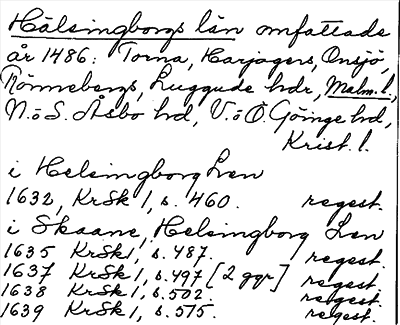 Hälsingborgs län omfattade
år 1486: Torna, Harjagers, Onsjö,
Rönnebergs, Luggude hdr, Malm. l.,
N. o S. Åsbo hd, V. o Ö. Göinge hd,
Krist. l.
i Helsingborg Len
1632, KrSk 1, s. 460. regest.
i Skaane, Helsingborg Len
1635 KrSk 1, s. 487. regest.
1637 KrSk 1, s. 497 [2 ggr] regest.
1638 KrSk 1, s. 502. regest.
1639 KrSk 1, s. 515. regest.